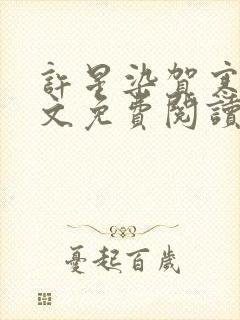 許星染賀
文免費閱讀
憂起百歲